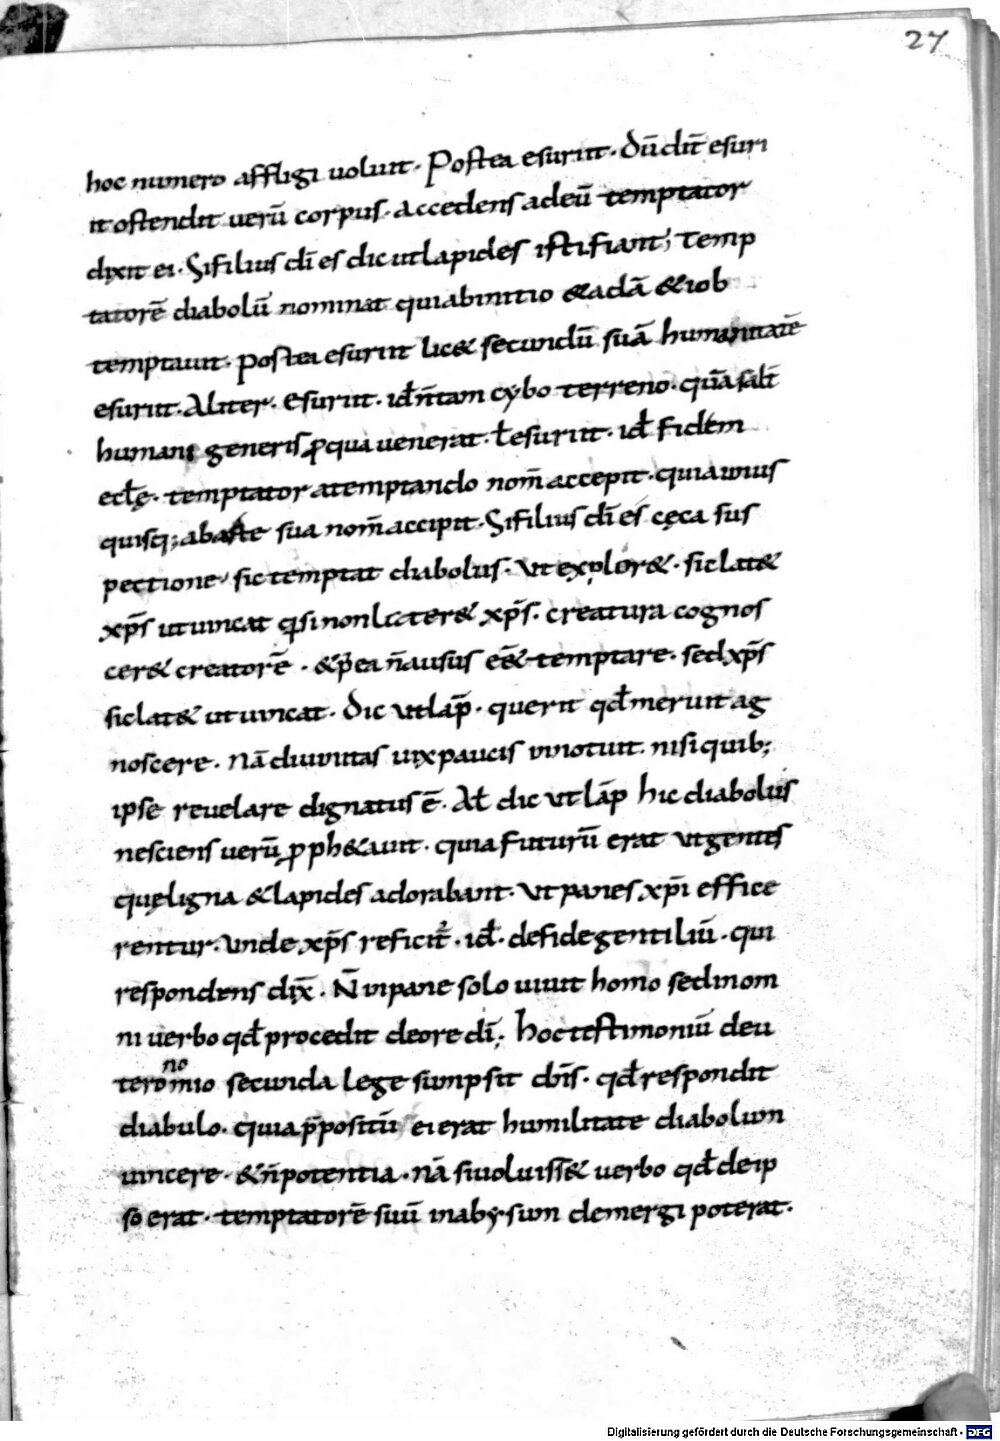 27
hoc numero affligi uoluit· Postea esuriit· Dū dicit̄ esuri
it ostendit uerū corpus· Accedens ad eū temptator
dixit ei· Si filius dī es dic ut lapides isti fiant; Temp
tatorē diabolū nominat quia binitio & adā & iob
temptauit· postea esuriit lic& secundū suā humanitatē
esuriit· Aliter· Esuriit· id̄ n̄ tam cybo terreno· quā salt̄
humani generis ꝓ qua uenerat· t̄ esuriit· id̄ fidem
eclę· temptator atemptando nom̄ accepit· quia unius
quisq; ab arte sua nom̄ accipit· Si filius dī es cęca sus
pectione sic temptat diabolus· Ut explor& · sic lat&
xp̄s ut uincat q̄si non later& xp̄s· creatura cognos
cer& creatorē · & p̄ea n̄ ausus eē& temptare· sed xp̄s
sic lat& ut uincat· Dic ut lap̄· querit qd̄ meruit ag
noscere· Nā diuinitas uix paucis innotuit· nisi quib;
ipse reuelare dignatus ē· Al̄ dic ut lāp hic diabolus
nesciens uerū ꝓph&auit· quia futurū erat ut gentes
quę ligna & lapides adorabant· Ut panes xp̄i effice
rentur· unde xp̄s reficit᷒· id̄· de fide gentiliū· qui
respondens dix̄· N̄ in pane solo uiuit homo sed in om
ni uerbo qd̄ procedit de ore dī; hoc testimoniū deu
no
teromio secunda lege sumpsit dn̄s· qd̄ respondit
diabulo· quia p̄positū ei erat humilitate diabolum
uincere· & n̄ potentia· nā si uoluiss& uerbo qd̄ de ip
so erat· temptatorē suū in abyssum demergi poterat·
Digitalisierung gefördert durch die Deutsche Forschungsgemeinschaft - DFG